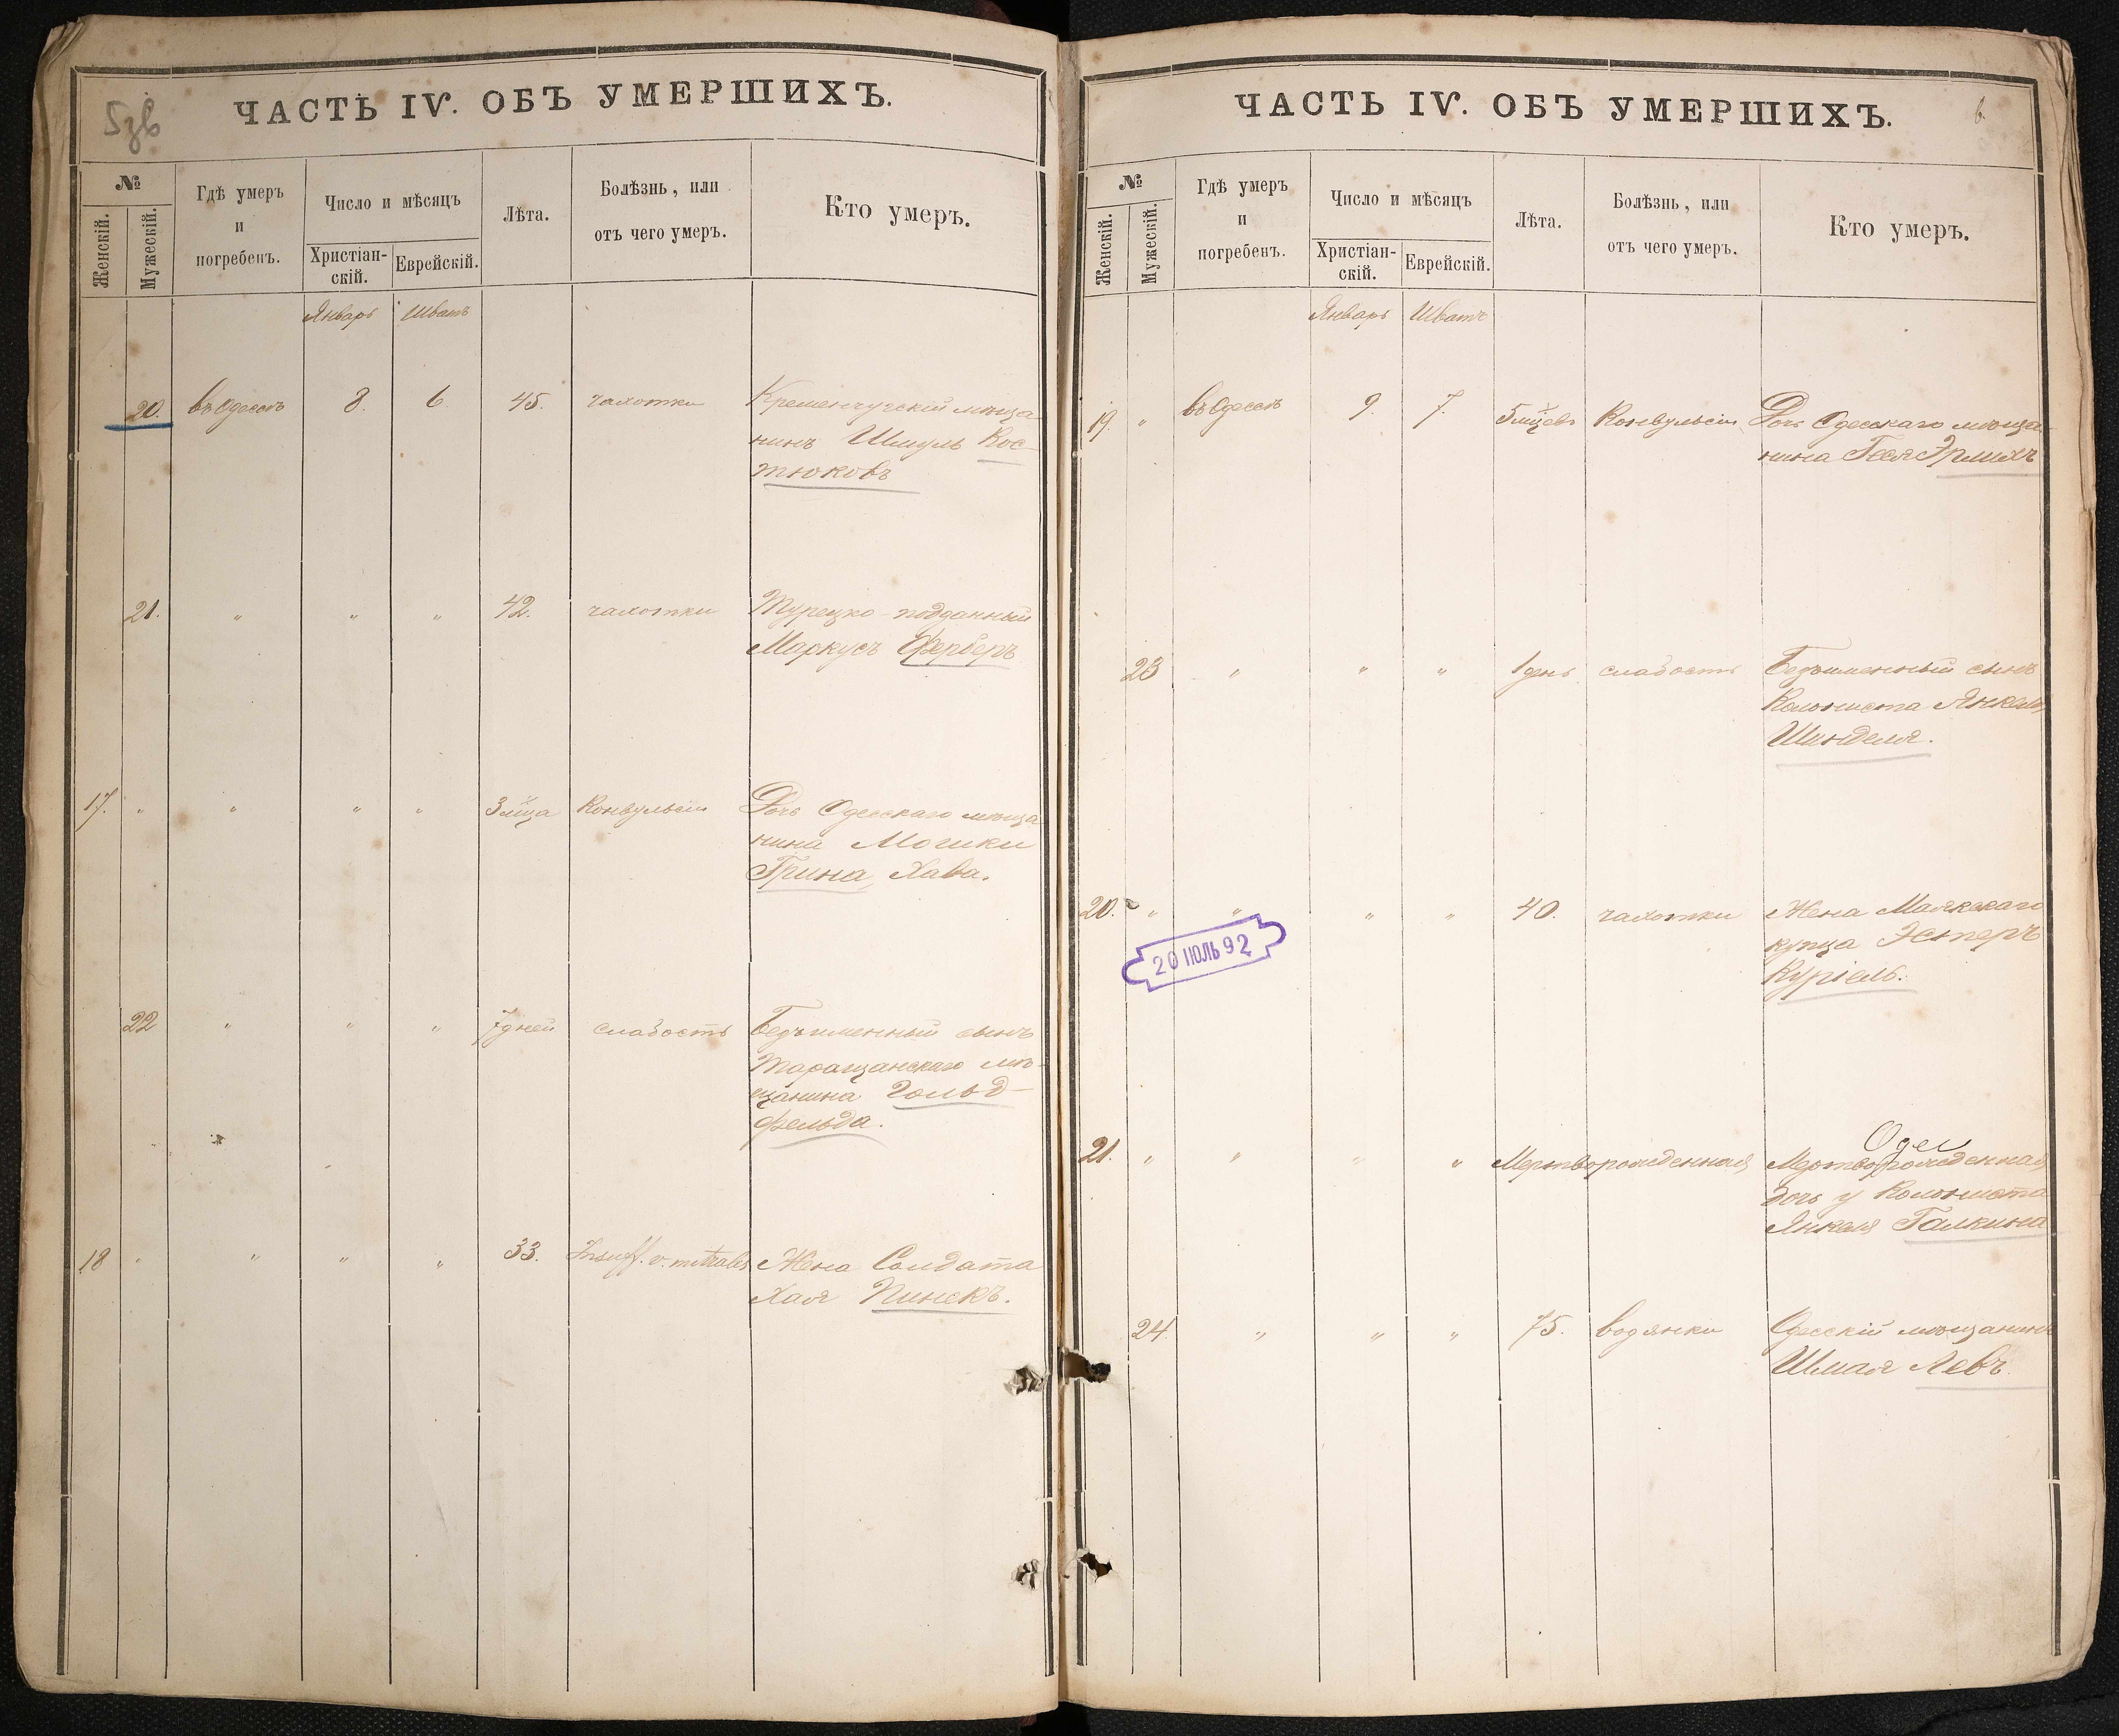 ЧАСТЬ IV. ОБЪ УМЕРШИХЪ.
№
Женскій.
Мужескій.
Гдѣ умеръ
и
погребенъ.
Число и мѣсяцъ
Христіан-
скій.
Еврейскій.
Лѣта.
Болѣзнь, или
отъ чего умеръ.
Кто умеръ.
Январь Шватъ
20. въ Одессѣ 8. 6 45. чахотки Кременчугскій мѣща-
нинъ Шмуль Кос-
тюковъ
21. " " " 42. чахотки Турецко-подданный
Маркусъ Ферберъ
17. " " " " 3 мца Конвульсіи Дочь Одесскаго мѣща
нина Мошки
Грина, Хава.
22 " " " 7 дней слабость Безъименный сынъ
Таращанскаго мѣ-
щанина Гольд-
фельда.
18 " " " " 33. Insuff. v. mitralis Жена Солдата
Хая Пинскъ.
ЧАСТЬ IV. ОБЪ УМЕРШИХЪ.
6.
№
Женскій.
Мужескій.
Гдѣ умеръ
и
погребенъ.
Число и мѣсяцъ
Христіан-
скій.
Еврейскій.
Лѣта.
Болѣзнь, или
отъ чего умеръ.
Кто умеръ.
Январь Шватъ
19. " въ Одессѣ 9. 7. 5 мцевъ Конвульсіи Дочь Одесскаго мѣща-
нина Геся Эрлихъ
23 " " " 1 день слабость Безъименный сынъ
Колониста Янкеля
Шинделя.
20. " " " " 40. чахотки Жена Маякскаго
купца Эстеръ
Куріель.
20 ІЮЛЬ 92
21. " " " " Мертворожденная Мертворожденная
дочь у Колониста
Янкеля Галкина
24. " " " 75. водянки Одесскій мѣщанинъ
Шмая Левъ.